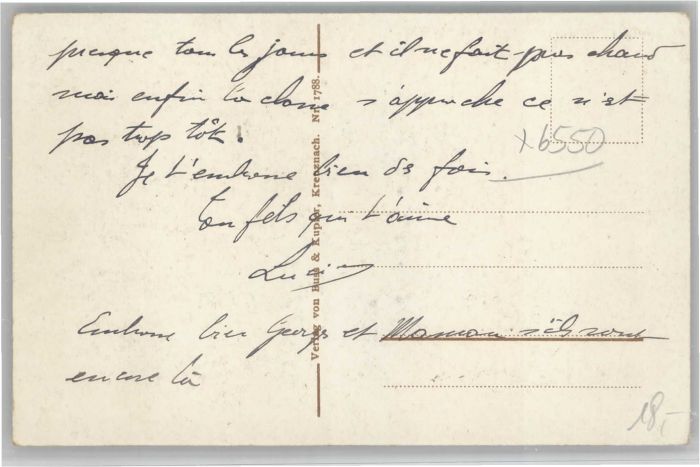 presque tous les jours et il ne fait pas chaud
mais enfin la classe s'approche ce n'est
pas trop tôt.
Je t'embrasse bien des fois.
Ton fils qui t'aime
Lucien
Embrasse bien Georges et Maman s'ils sont
encore là
x6550
18,-
Verlag von Buss & Kupfer, Kreuznach. Nr. 1788.